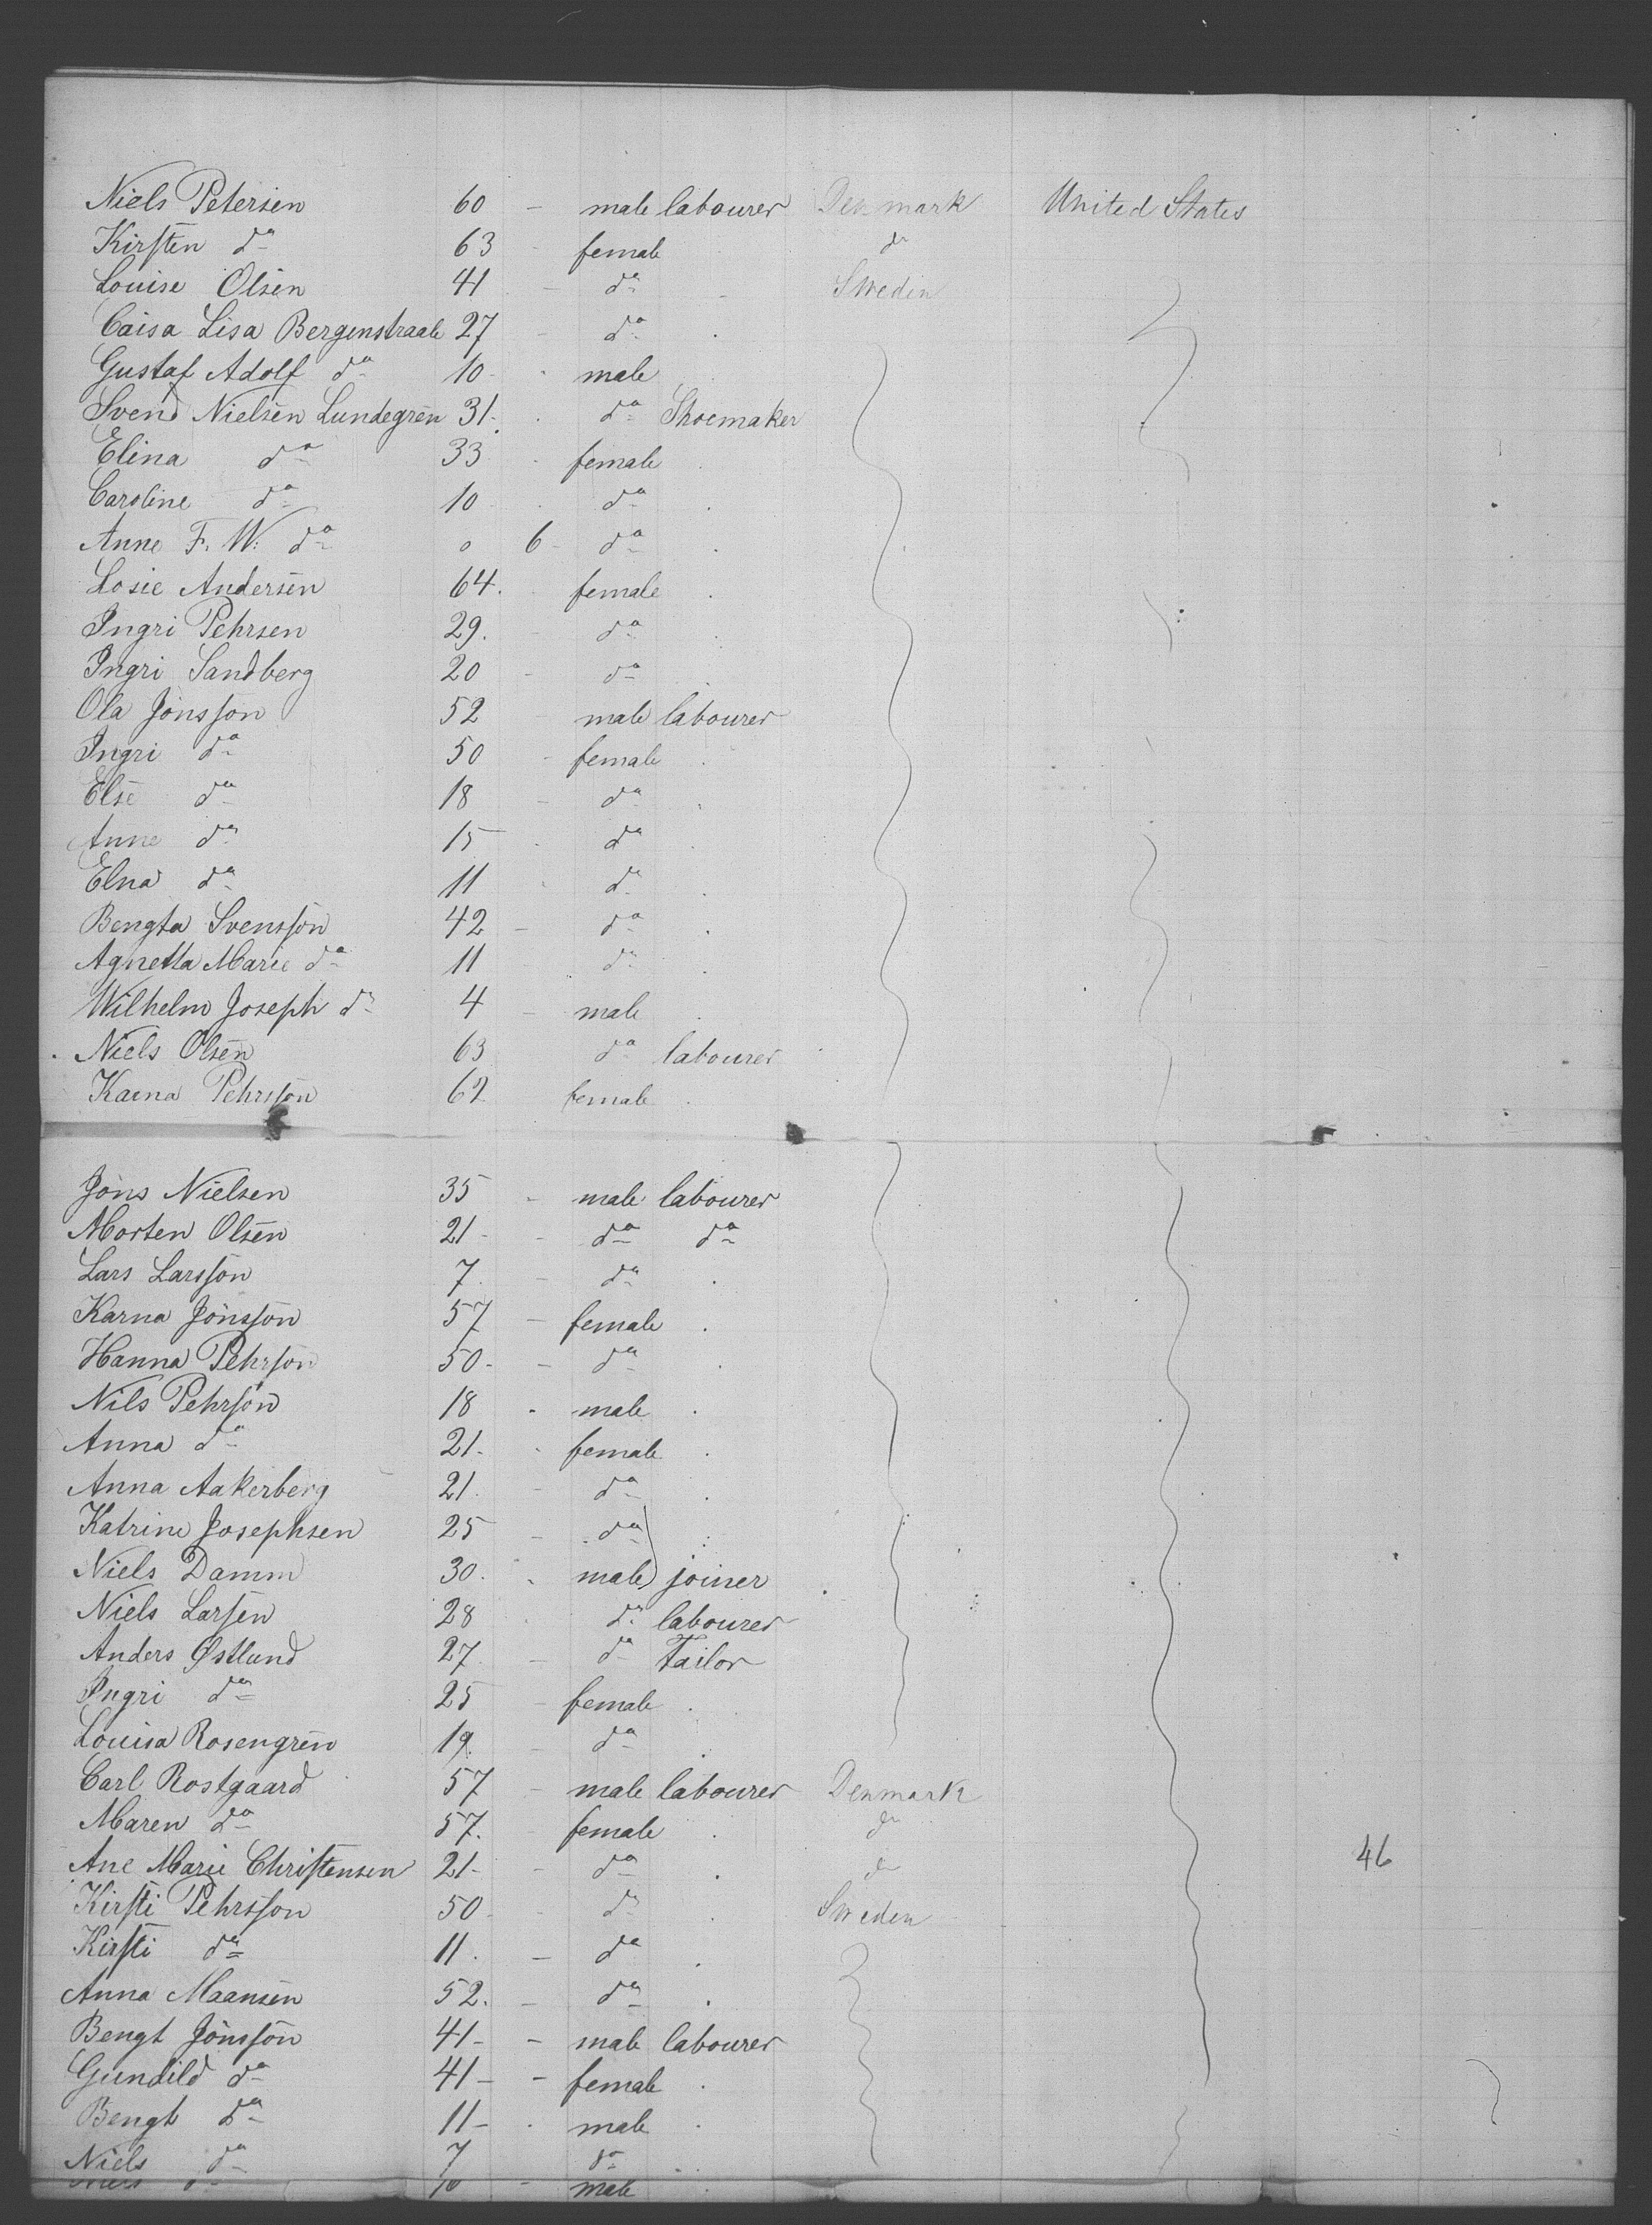 Niels Petersen 60 - male labourer Denmark United States
Kirsten do 63 - female do
Louise Olsen 41 - do - Sweden
Caisa Lisa Bergenstraale 27 - do
Gustaf Adolf do 10 - male
Svend Nielsen Lundegren 31 - do Shoemaker
Elina do 33 - female
Caroline do 10 - do
Anne F. W. do 0 6 - do
Losie Andersen 64 female
Ingri Pehrsen 29 - do
Ingri Sandberg 20 - do
Ola Jönsson 52 - male labourer
Ingri do 50 - female
Else do 18 - do
Anne do 15 - do
Elna do 11 - do
Bengta Svensson 42 - do
Agnetta Marie do 11 do
Wilhelm Joseph do 4 - male
Niels Olsen 63 do labourer
Karna Pehrsson 62 female
Jöns Nielsen 35 - male labourer
Morten Olsen 21 - do do
Lars Larsson 7 - do
Karna Jönsson 57 - female
Hanna Pehrson 50 - do
Nils Pehrson 18 - male
Anna do 21 - female
Anna Aakerberg 21 - do
Katrine Josephsen 25 - do
Niels Damm 30 - male joiner
Niels Larsen 28 do labourer
Anders Østlund 27 - do Tailor
Ingri do 25 - female
Louisa Rosengren 19 - do
Carl Rostgaard 57 - male labourer Denmark
Maren do 57 - female do
Ane Marie Christensen 21 - do do 46
Kirsti Pehrsson 50 - do Sweden
Kirsti do 11 - do
Anna Maansen 52 - do
Bengt Jönsson 41 - male labourer
Gundild do 41 - female
Bengt do 11 - male
Niels do 7 do
male